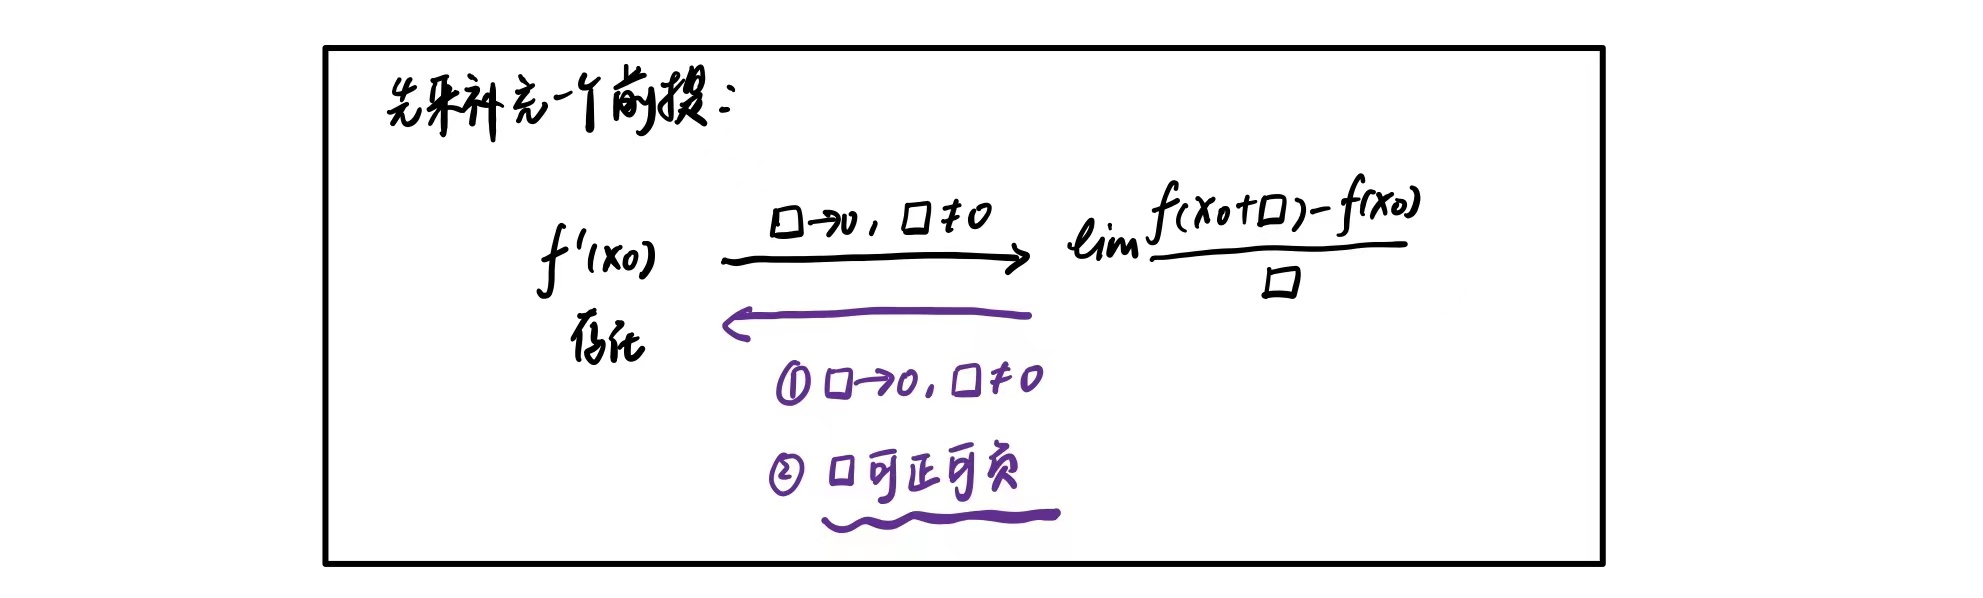 先来补充一个前提：
f'(x0) 存在
□→0, □≠0
lim f(x0+□)-f(x0) / □
① □→0, □≠0
② □可正可负